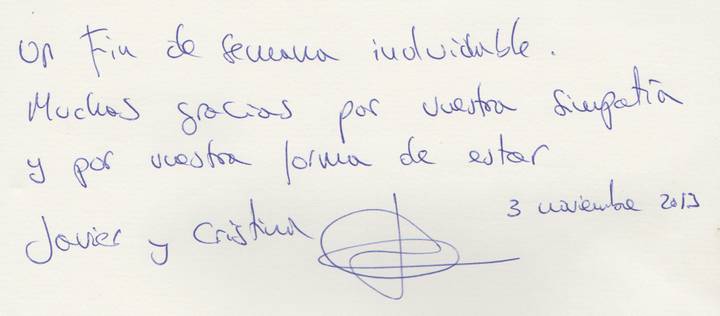 Un Fin de semana inolvidable.
Muchas gracias por vuestra simpatía
y por vuestra forma de estar
Javier y Cristina
3 noviembre 2013